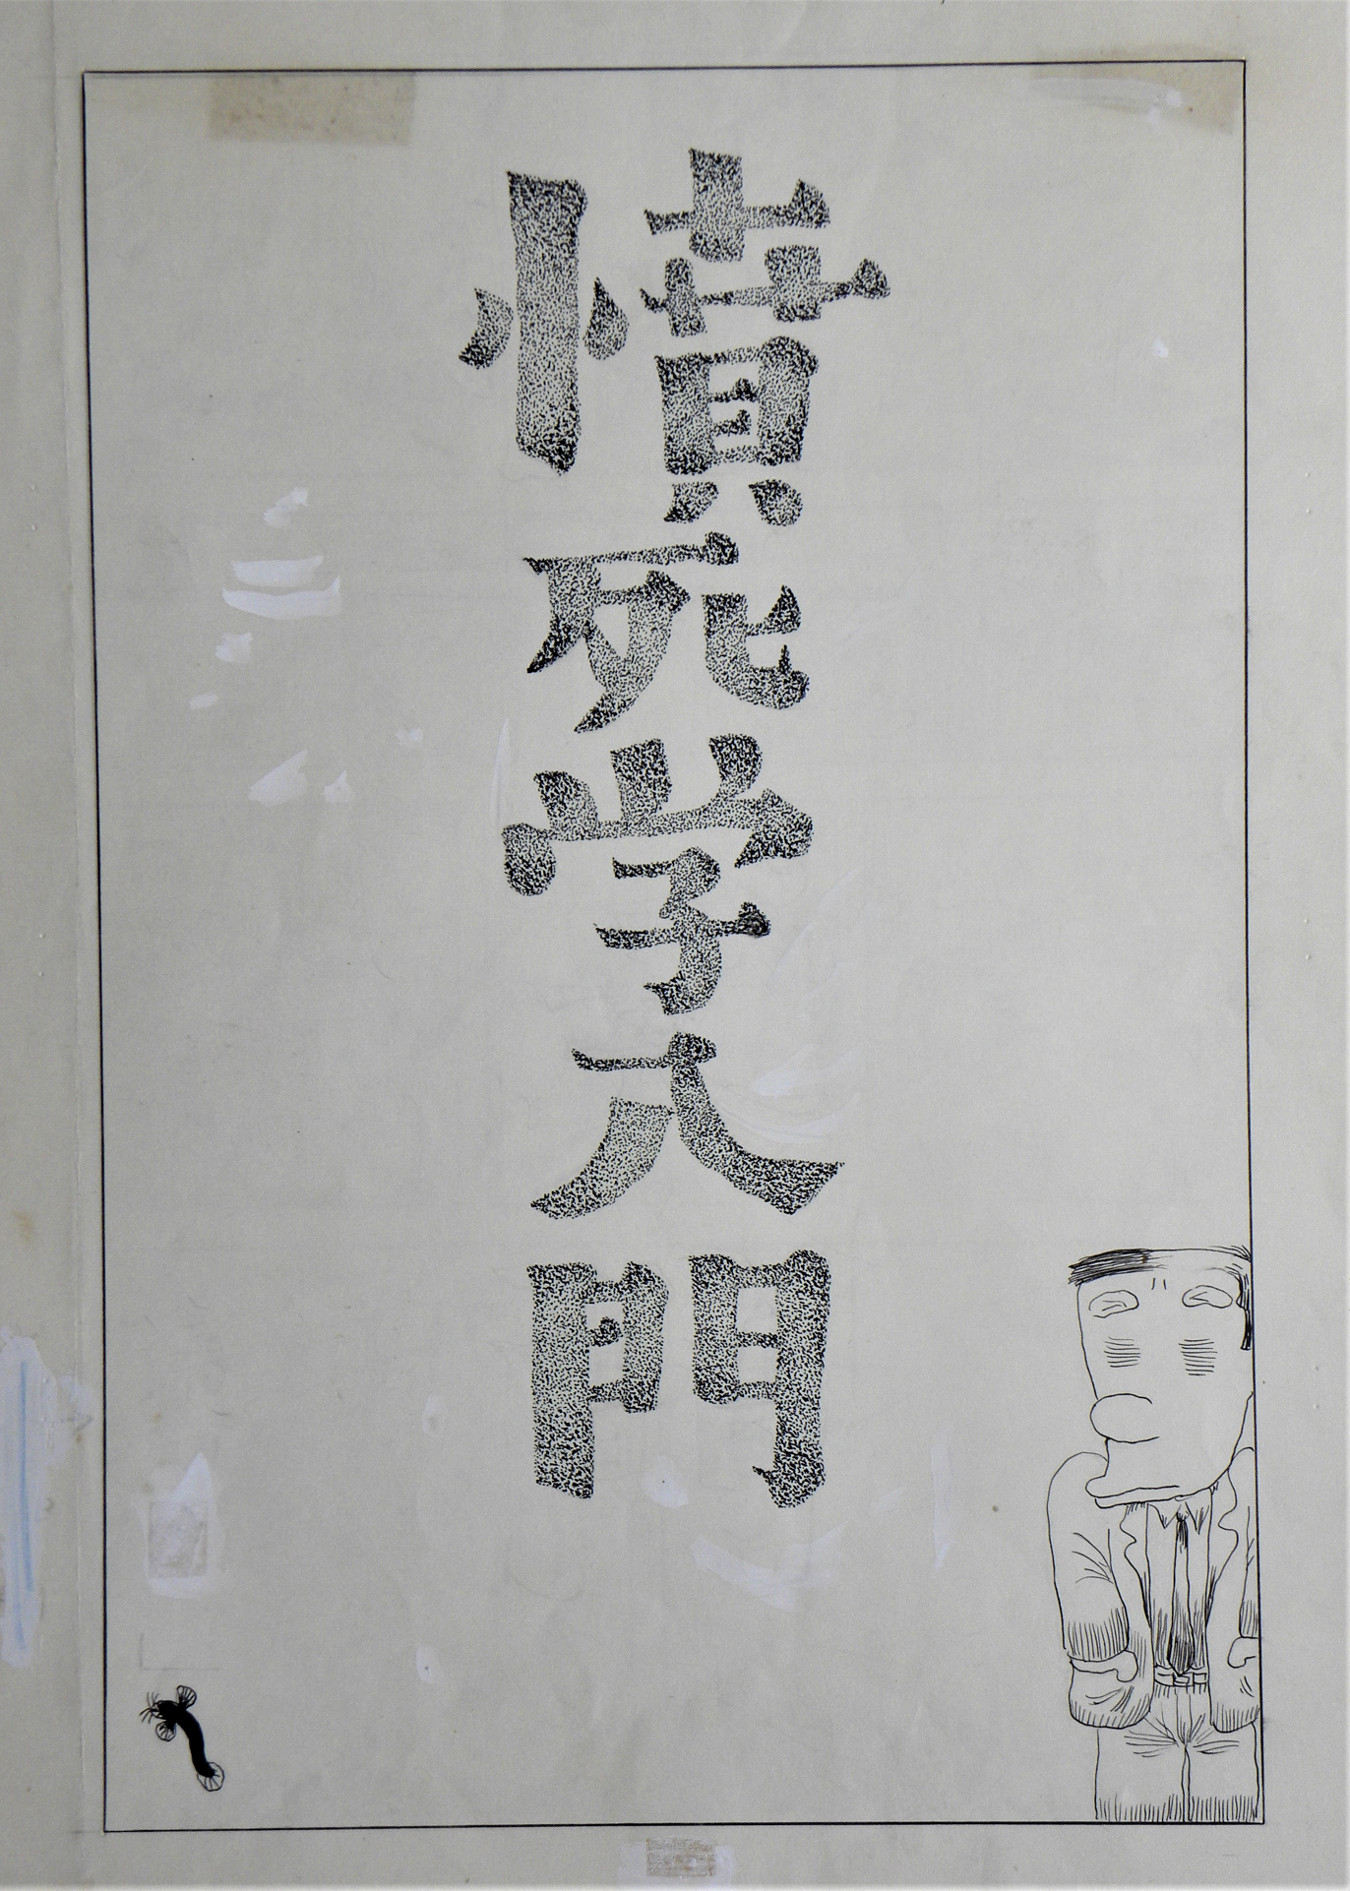 憤死学入門